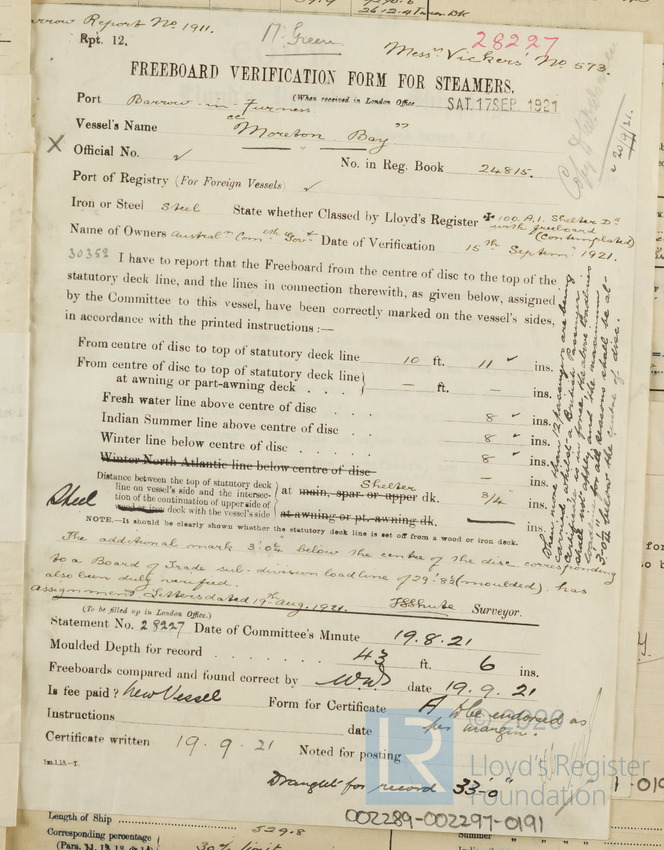 26.12.4
Barrow Report No. 1911.
Rpt. 12.
Mr Green
28227
Messrs Vickers' No 573.
FREEBOARD VERIFICATION FORM FOR STEAMERS.
(When received in London Office SAT. 17 SEP. 1921
Port Barrow-in-Furness
Vessel's Name "Moreton Bay"
X
Official No. ✓ No. in Reg. Book 24815.
Port of Registry (For Foreign Vessels) ✓
Iron or Steel Steel State whether Classed by Lloyd's Register ✠ 100.A.1. Shelter Dk
with freeboard
(Contemplated)
Name of Owners Australn Comth Govt Date of Verification 15th Septemr 1921.
30352
I have to report that the Freeboard from the centre of disc to the top of the
statutory deck line, and the lines in connection therewith, as given below, assigned
by the Committee to this vessel, have been correctly marked on the vessel's sides,
in accordance with the printed instructions :—
From centre of disc to top of statutory deck line 10 ft. 11 ✓ ins.
From centre of disc to top of statutory deck line
at awning or part-awning deck . . . — ft. — ins.
Fresh water line above centre of disc . . . 8 ✓ ins.
Indian Summer line above centre of disc . . 8 ✓ ins.
Winter line below centre of disc . . . . 8 ✓ ins.
Winter North Atlantic line below centre of disc — ins.
Distance between the top of statutory deck
line on vessel's side and the intersec-
tion of the continuation of upper side of
Steel wood or iron deck with the vessel's side
at main, spar or upper dk. Shelter 3/4 ins.
at awning or pt.-awning dk. — ins.
NOTE.—It should be clearly shown whether the statutory deck line is set off from a wood or iron deck.
When more than 12 passengers are being
carried, whilst a British Passenger
Certificate is in force, the above loadlines
shall not apply, and the maximum
loadline for all seasons shall be at-
3'-0" below the centre of disc.
The additional mark 3'.0" below the centre of the disc corresponding
to a Board of Trade sub-division loadline of 29'.8½" (moulded), has
also been duly verified.
Assignment Letters dated 19th Aug. 1921. Surveyor.
(To be filled up in London Office.)
Statement No. 28227 Date of Committee's Minute 19.8.21
Moulded Depth for record . . . . . . 43 ft. 6 ins.
Freeboards compared and found correct by date 19.9.21
Is fee paid? New Vessel Form for Certificate A to be endorsed as
per margin.
Instructions date
Certificate written 19.9.21 Noted for posting
Draught for record 33'-0"
© 2020
LR
Lloyd's Register
Foundation
002289-002297-0191
Length of Ship
529.8
Corresponding percentage
(Para. 11, 12, 13, 14)
30% limit
Summer